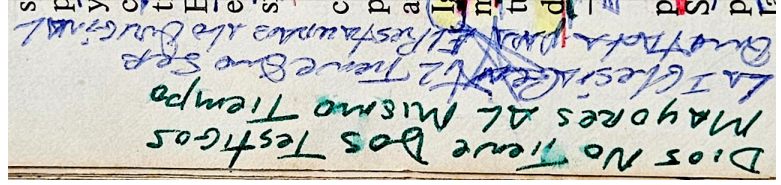 Dios No Tiene Dos Testigos
Mayores AL Mismo Tiempo
La Iglesia Tiene Que Ser
Quitada para EL ORiginal